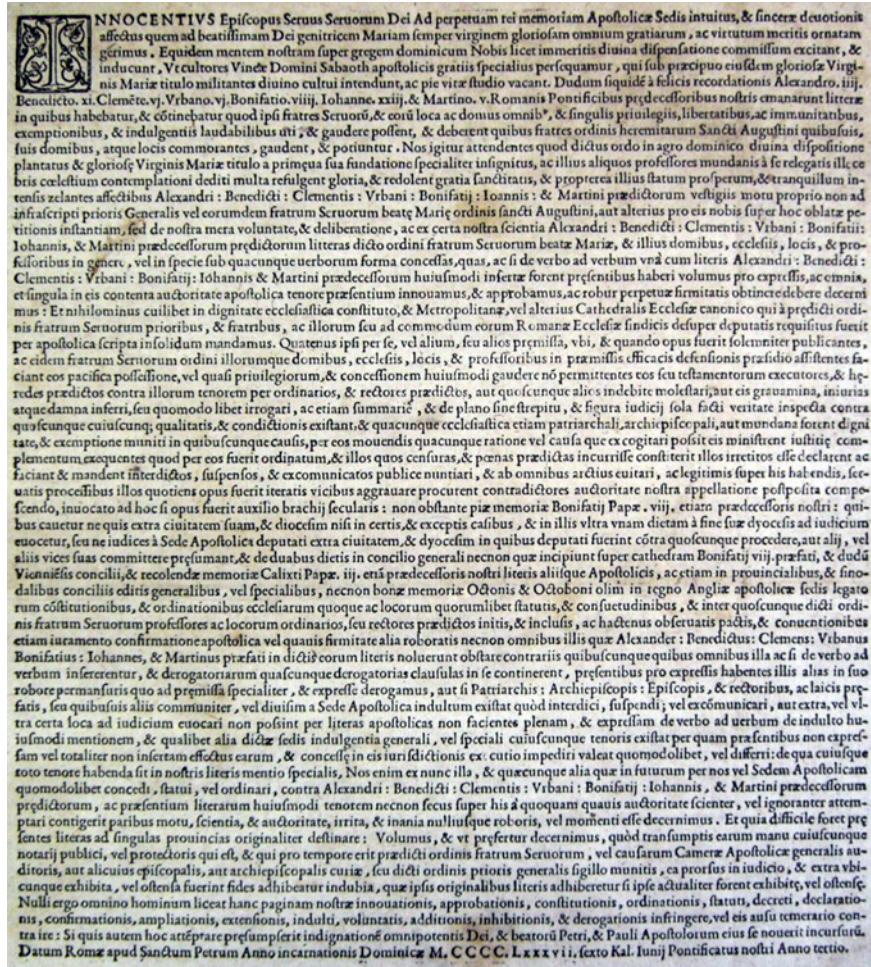 INNOCENTIVS Episcopus Seruus Seruorum Dei Ad perpetuam rei memoriam Apostolicæ Sedis intuitus, & sinceræ deuotionis
affectus quem ad beatissimam Dei genitricem Mariam semper virginem gloriosam omnium gratiarum, ac virtutum meritis ornatam
gerimus. Equidem mentem nostram super gregem dominicum Nobis licet immeritis diuina dispensatione commissum excitant, &
inducunt, Vt cultores Vineæ Domini Sabaoth apostolicis gratiis specialius persequamur, qui sub præcipuo eiusdem gloriosæ Virgi-
nis Mariæ titulo militantes diuino cultui intendunt, ac pie vitæ studio vacant. Dudum siquidé à felicis recordationis Alexandro. iiij.
Benedicto. xi. Cleméte. vj. Vrbano. vj. Bonifatio. viiij. Iohanne. xxiij. & Martino. v. Romanis Pontificibus prędecessoribus nostris emanarunt litteræ
in quibus habebatur, & cótinebatur quod ipsi fratres Seruorũ, & eorũ loca ac domus omnibꝰ, & singulis priuilegiis, libertatibus, ac immunitatibus,
exemptionibus, & indulgentiis laudabilibus uti, & gaudere possent, & deberent quibus fratres ordinis heremitarum Sancti Augustini quibusuis,
suis domibus, atque locis commorantes, gaudent, & potiuntur. Nos igitur attendentes quod dictus ordo in agro dominico diuina dispositione
plantatus & gloriosę Virginis Mariæ titulo a primęua sua fundatione specialiter insignitus, ac illius aliquos professores mundanis à se relegatis illece
bris cœlestium contemplationi dediti multa refulgent gloria, & redolent gratia sanctitatis, & propterea illius statum prosperum, & tranquillum in-
tensis zelantes affectibus Alexandri : Benedicti : Clementis : Vrbani : Bonifatij : Ioannis : & Martini prædictorum vestigiis motu proprio non ad
infrascripti prioris Generalis vel eorumdem fratrum Seruorum beatę Marię ordinis sancti Augustini, aut alterius pro eis nobis super hoc oblatæ pe-
titionis instantiam, sed de nostra mera voluntate, & deliberatione, ac ex certa nostra scientia Alexandri : Benedicti : Clementis : Vrbani : Bonifatii:
Iohannis, & Martini prædecessorum prędictorum litteras dicto ordini fratrum Seruorum beatæ Mariæ, & illius domibus, ecclesiis, locis, & pro-
fessoribus in genere, vel in specie sub quacunque uerborum forma concessas, quas, ac si de verbo ad verbum vnà cum literis Alexandri : Benedicti :
Clementis : Vrbani : Bonifatij : Iohannis & Martini prædecessorum huiusmodi insertæ forent pręsentibus haberi volumus pro expressis, ac omnia,
et singula in eis contenta auctoritate apostolica tenore præsentium innouamus, & approbamus, ac robur perpetuæ firmitatis obtinere debere decerni
mus : Et nihilominus cuilibet in dignitate ecclesiastica constituto, & Metropolitanæ, vel alterius Cathedralis Ecclesiæ canonico qui à prędicti ordi-
nis fratrum Seruorum prioribus, & fratribus, ac illorum seu ad commodum eorum Romanæ Ecclesiæ sindicis desuper deputatis requisitus fuerit
per apostolica scripta insolidum mandamus. Quatenus ipsi per se, vel alium, seu alios pręmissa, vbi, & quando opus fuerit solemniter publicantes,
ac eidem fratrum Seruorum ordini illorumque domibus, ecclesiis, locis, & professoribus in præmissis efficacis defensionis præsidio assistentes fa-
ciant eos pacifica possessione, vel quasi priuilegiorum, & concessionem huiusmodi gaudere nõ permittentes eos seu testamentorum executores, & hę-
redes prædictos contra illorum tenorem per ordinarios, & rectores prædictos, aut quoscunque alios indebite molestari, aut eis grauamina, iniurias
atque damna inferri, seu quomodo libet irrogari, ac etiam summarie, & de plano sine strepitu, & figura iudicij sola facti veritate inspecta contra
quoscunque cuiuscunq; qualitatis, & condictionis existant, & quacunque ecclesiastica etiam patriarchali, archiepiscopali, aut mundana forent digni
tate, & exemptione muniti in quibuscunque causis, per eos mouendis quacunque ratione vel causa que excogitari possit eis ministrent iustitię com-
plementum exequentes quod per eos fuerit ordinatum, & illos quos censuras, & pœnas prædictas incurrisse constiterit illos irretitos esse declarent ac
faciant & mandent interdictos, suspensos, & excomunicatos publice nuntiari, & ab omnibus arctius euitari, ac legitimis super his habendis, ser-
uatis processibus illos quotiens opus fuerit iteratis vicibus aggrauare procurent contradictores auctoritate nostra appellatione postposita compe-
scendo, inuocato ad hoc si opus fuerit auxilio brachij secularis : non obstante piæ memoriæ Bonifatij Papæ. viij, etiam prædecessoris nostri : qui-
bus cauetur ne quis extra ciuitatem suam, & diocesim nisi in certis, & exceptis casibus, & in illis vltra vnam dietam à fine suæ dyocesis ad iudicium
euocetur, seu ne iudices à Sede Apostolica deputati extra ciuitatem, & dyocesim in quibus deputati fuerint cótra quoscunque procedere, aut alij, vel
aliis vices suas committere pręsumant, & de duabus dietis in concilio generali necnon quæ incipiunt super cathedram Bonifatij viij. præfati, & dudũ
Viennésis concilii, & recolendæ memoriæ Calixti Papæ. iij. etiã prædecessoris nostri literis aliisque Apostolicis, ac etiam in prouincialibus, & sino-
dalibus conciliis editis generalibus, vel specialibus, necnon bonæ memoriæ Octonis & Octoboni olim in regno Angliæ apostolicæ sedis legato
rum cóstitutionibus, & ordinationibus ecclesiarum quoque ac locorum quorumlibet statutis, & consuetudinibus, & inter quoscunque dicti ordi-
nis fratrum Seruorum professores ac locorum ordinarios, seu rectores prædictos initis, & inclusis, ac hactenus obseruatis pactis, & conuentionibus
etiam iuramento confirmatione apostolica vel quauis firmitate alia roboratis necnon omnibus illis quæ Alexander : Benedictus: Clemens: Vrbanus
Bonifatius : Iohannes, & Martinus præfati in dictis eorum literis noluerunt obstare contrariis quibuscunque quibus omnibus illa ac si de verbo ad
verbum insererentur, & derogatoriarum quascunque derogatorias clausulas in se continerent, præsentibus pro expressis habentes illis alias in suo
robore permansuris quo ad pręmissa specialiter, & expresse derogamus, aut si Patriarchis : Archiepiscopis : Episcopis, & rectoribus, ac laicis prę-
fatis, seu quibusuis aliis communiter, vel diuisim a Sede Apostolica indultum existat quòd interdici, suspendi, vel excómunicari, aut extra, vel vl-
tra certa loca ad iudicium euocari non possint per literas apostolicas non facientes plenam, & expressam de verbo ad uerbum de indulto hu-
iusmodi mentionem, & qualibet alia dictæ sedis indulgentia generali, vel speciali cuiuscunque tenoris existat per quam præsentibus non expres-
sam vel totaliter non insertam effectus earum, & concessę in eis iurisdictionis executio impediri valeat quomodolibet, vel differri: de qua cuiusque
toto tenore habenda sit in nostris literis mentio specialis. Nos enim ex nunc illa, & quæcunque alia quæ in futurum per nos vel Sedem Apostolicam
quomodolibet concedi, statui, vel ordinari, contra Alexandri : Benedicti : Clementis : Vrbani : Bonifatij : Iohannis, & Martini prædecessorum
prędictorum, ac præsentium literarum huiusmodi tenorem necnon secus super his à quoquam quauis auctoritate scienter, vel ignoranter attem-
ptari contigerit paribus motu, scientia, & auctoritate, irrita, & inania nulliusque roboris, vel momenti esse decernimus. Et quia difficile foret prę
sentes literas ad singulas prouincias originaliter destinare : Volumus, & vt pręfertur decernimus, quòd transumptis earum manu cuiuscunque
notarij publici, vel protectoris qui est, & qui pro tempore erit prædicti ordinis fratrum Seruorum, vel causarum Cameræ Apostolicæ generalis au-
ditoris, aut alicuius episcopalis, aut archiepiscopalis curiæ, seu dicti ordinis prioris generalis sigillo munitis, ea prorsus in iudicio, & extra vbi-
cunque exhibita, vel ostensa fuerint fides adhibeatur indubia, quæ ipsis originalibus literis adhiberetur si ipse actualiter forent exhibitę, vel ostensę.
Nulli ergo omnino hominum liceat hanc paginam nostræ innouationis, approbationis, constitutionis, ordinationis, statuti, decreti, declaratio-
nis, confirmationis, ampliationis, extensionis, indulti, voluntatis, additionis, inhibitionis, & derogationis infringere, vel eis ausu temerario con-
tra ire : Si quis autem hoc attéptare pręsumpserit indignationé omnipotentis Dei, & beatorũ Petri, & Pauli Apostolorum eius se nouerit incursurũ.
Datum Romæ apud Sanctum Petrum Anno incarnationis Dominicæ M. CCCC. Lxxxvii. sexto Kal. Iunij Pontificatus nostri Anno tertio.